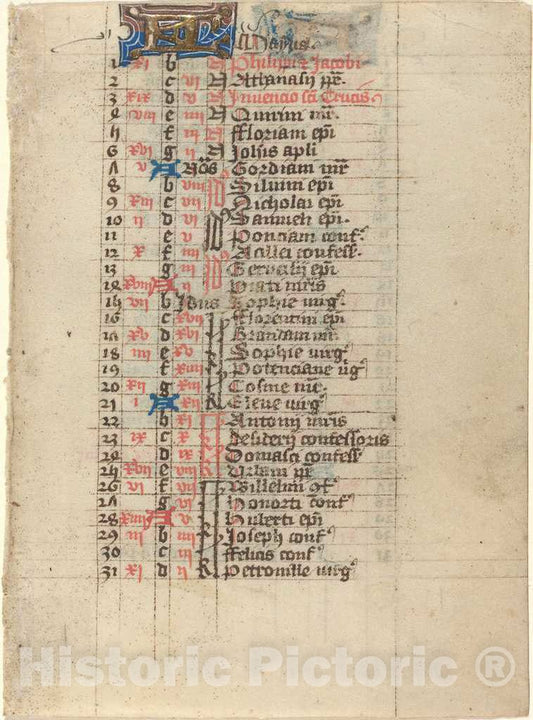 KL Mayus.
1 xi b Philippi et Jacobi
2 c vi Athanasij
3 xix d v Invencio scī Crucis
4 viii e iiii Quirini mr̄.
5 f iii Floriani epī
6 xvi g ii Joh̄is apli
7 v A Noꝰ Gordiani mr̄
8 b viii epī
9 xiii c vii Nicholai epī
10 ii d vi epī.
11 e v Ponciani conf.
12 x f iiii confess.
13 g iii Gervasij epī
14 xviii A ii mr̄is
15 vii b Idus Sophie virg
16 c xvii Florentini epī
17 xv d xvi
18 iiii e xv Sophie virg
19 f xiiii Potenciane vg
20 xii g xiii Cosme mr.
21 i A xii Elene virg
22 b xi Antonij mr̄is
23 ix c x desiderij confessoris
24 d ix Donaci confess
25 xvii e viii Urbani
26 vi f vii Wilhelmi
27 g vi Honorti conf
28 xiiii A v Huberti epī
29 iii b iiii Joseph conf
30 c iii Felicis conf
31 xi d ii Petronille virg
Historic Pictoric ®